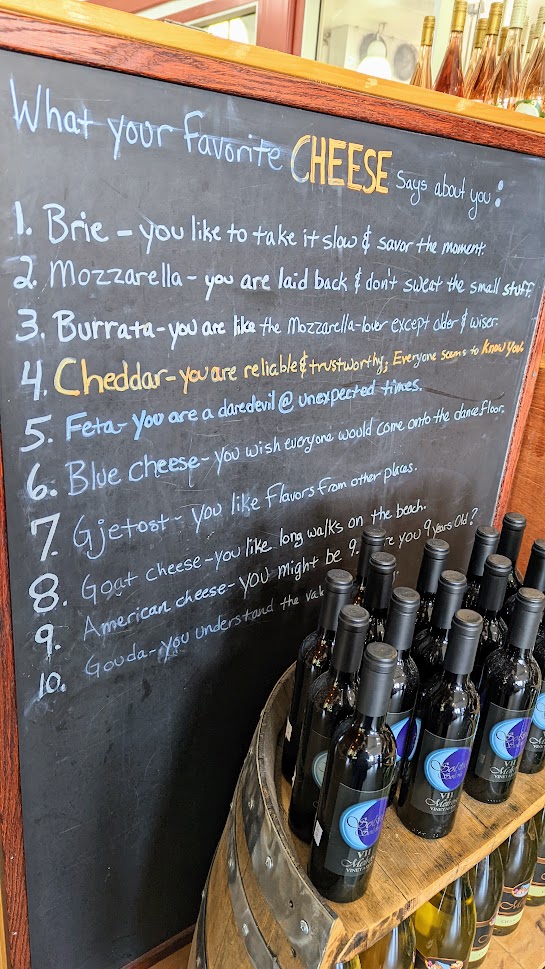 What your Favorite CHEESE Says about you:
1. Brie - you like to take it slow & savor the moment.
2. Mozzarella - you are laid back & don't sweat the small stuff.
3. Burrata - you are like the Mozzarella-lover except older & wiser.
4. Cheddar - you are reliable & trustworthy; Everyone seems to know you.
5. Feta - you are a daredevil @ unexpected times.
6. Blue cheese - you wish everyone would come onto the dance floor.
7. Gjetost - you like flavors from other places.
8. Goat cheese - you like long walks on the beach.
9. American cheese - you might be 9. re you 9 years old?
10. Gouda - you understand the
VII